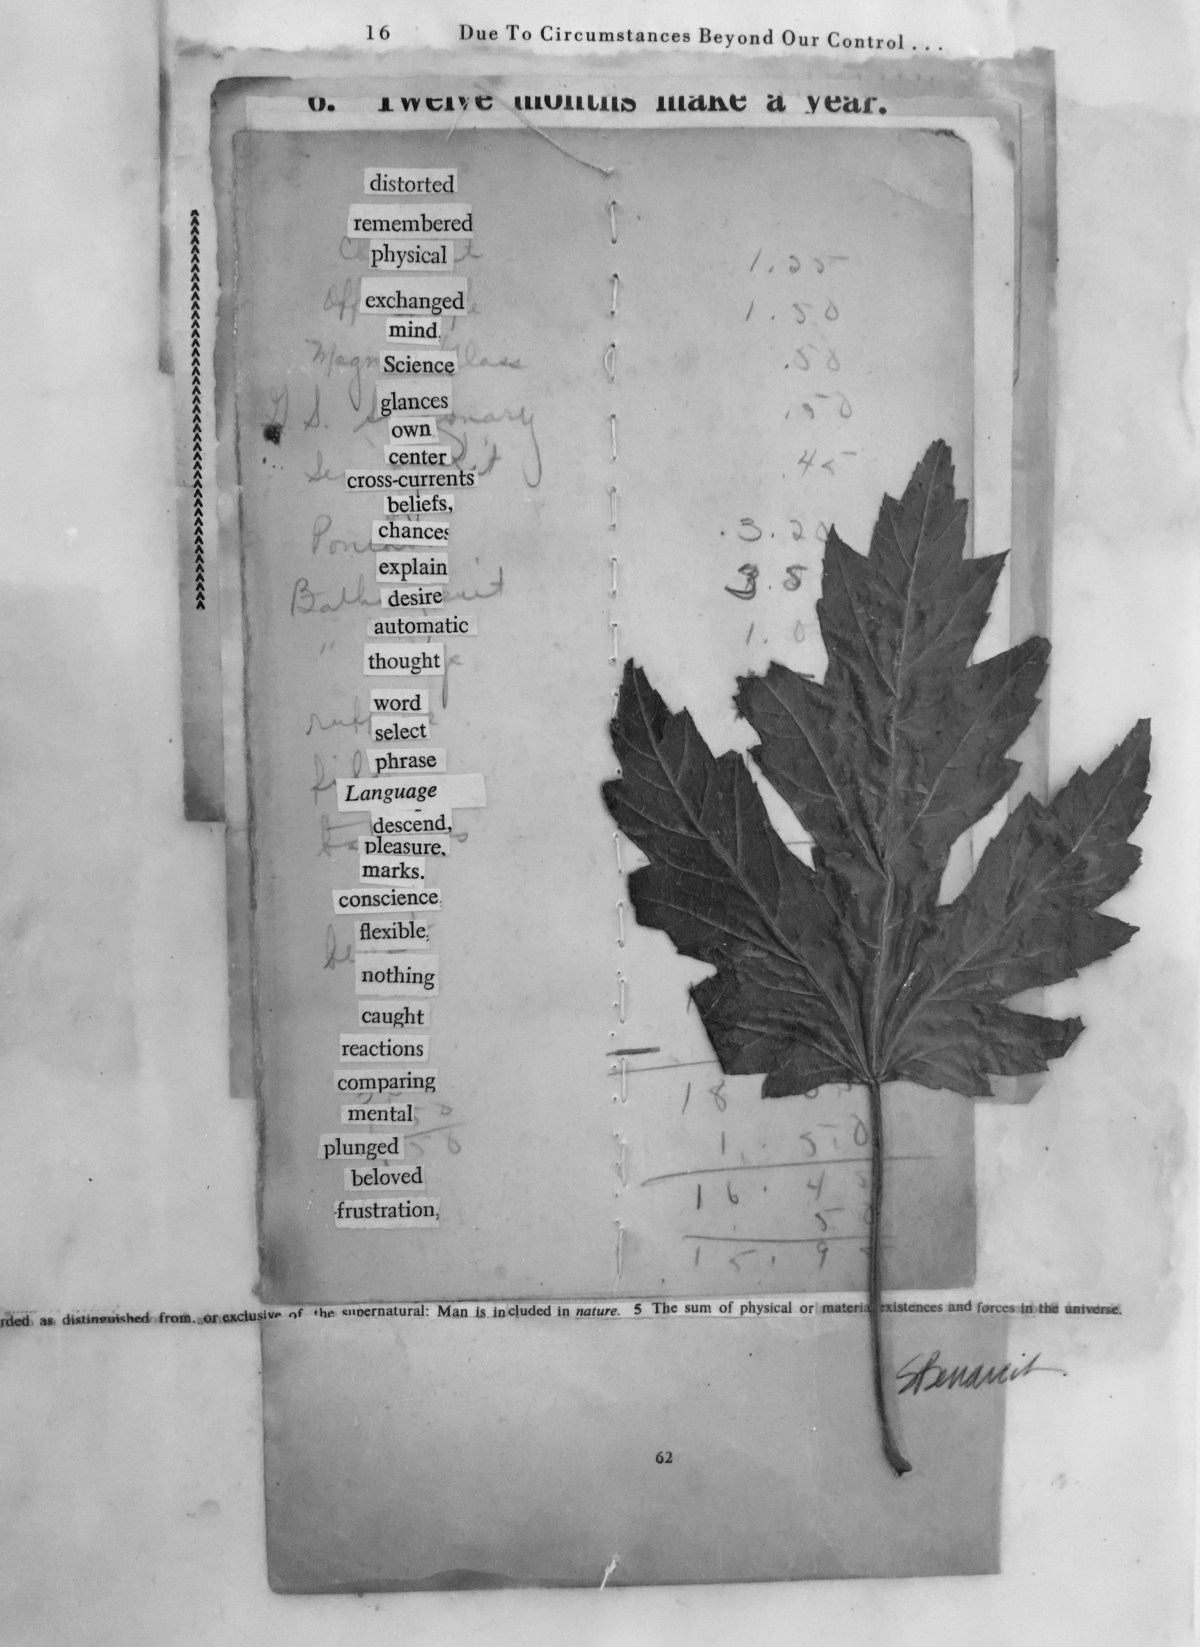 16 Due To Circumstances Beyond Our Control . . .
6. Twelve months make a year.
distorted
remembered
physical
1.25
exchanged
1.50
mind.
Science
.50
glances
.50
own
center
.45
cross-currents
beliefs,
chances
3.20
explain
3.5
desire
automatic
1.0
thought
word
select
phrase
Language
descend,
pleasure.
marks.
conscience,
flexible,
nothing
caught
reactions
comparing
18
mental
1.50
plunged
beloved
16.4
frustration,
5
15.9
rded as distinguished from, or exclusive of the supernatural: Man is included in nature. 5 The sum of physical or material existences and forces in the universe.
62